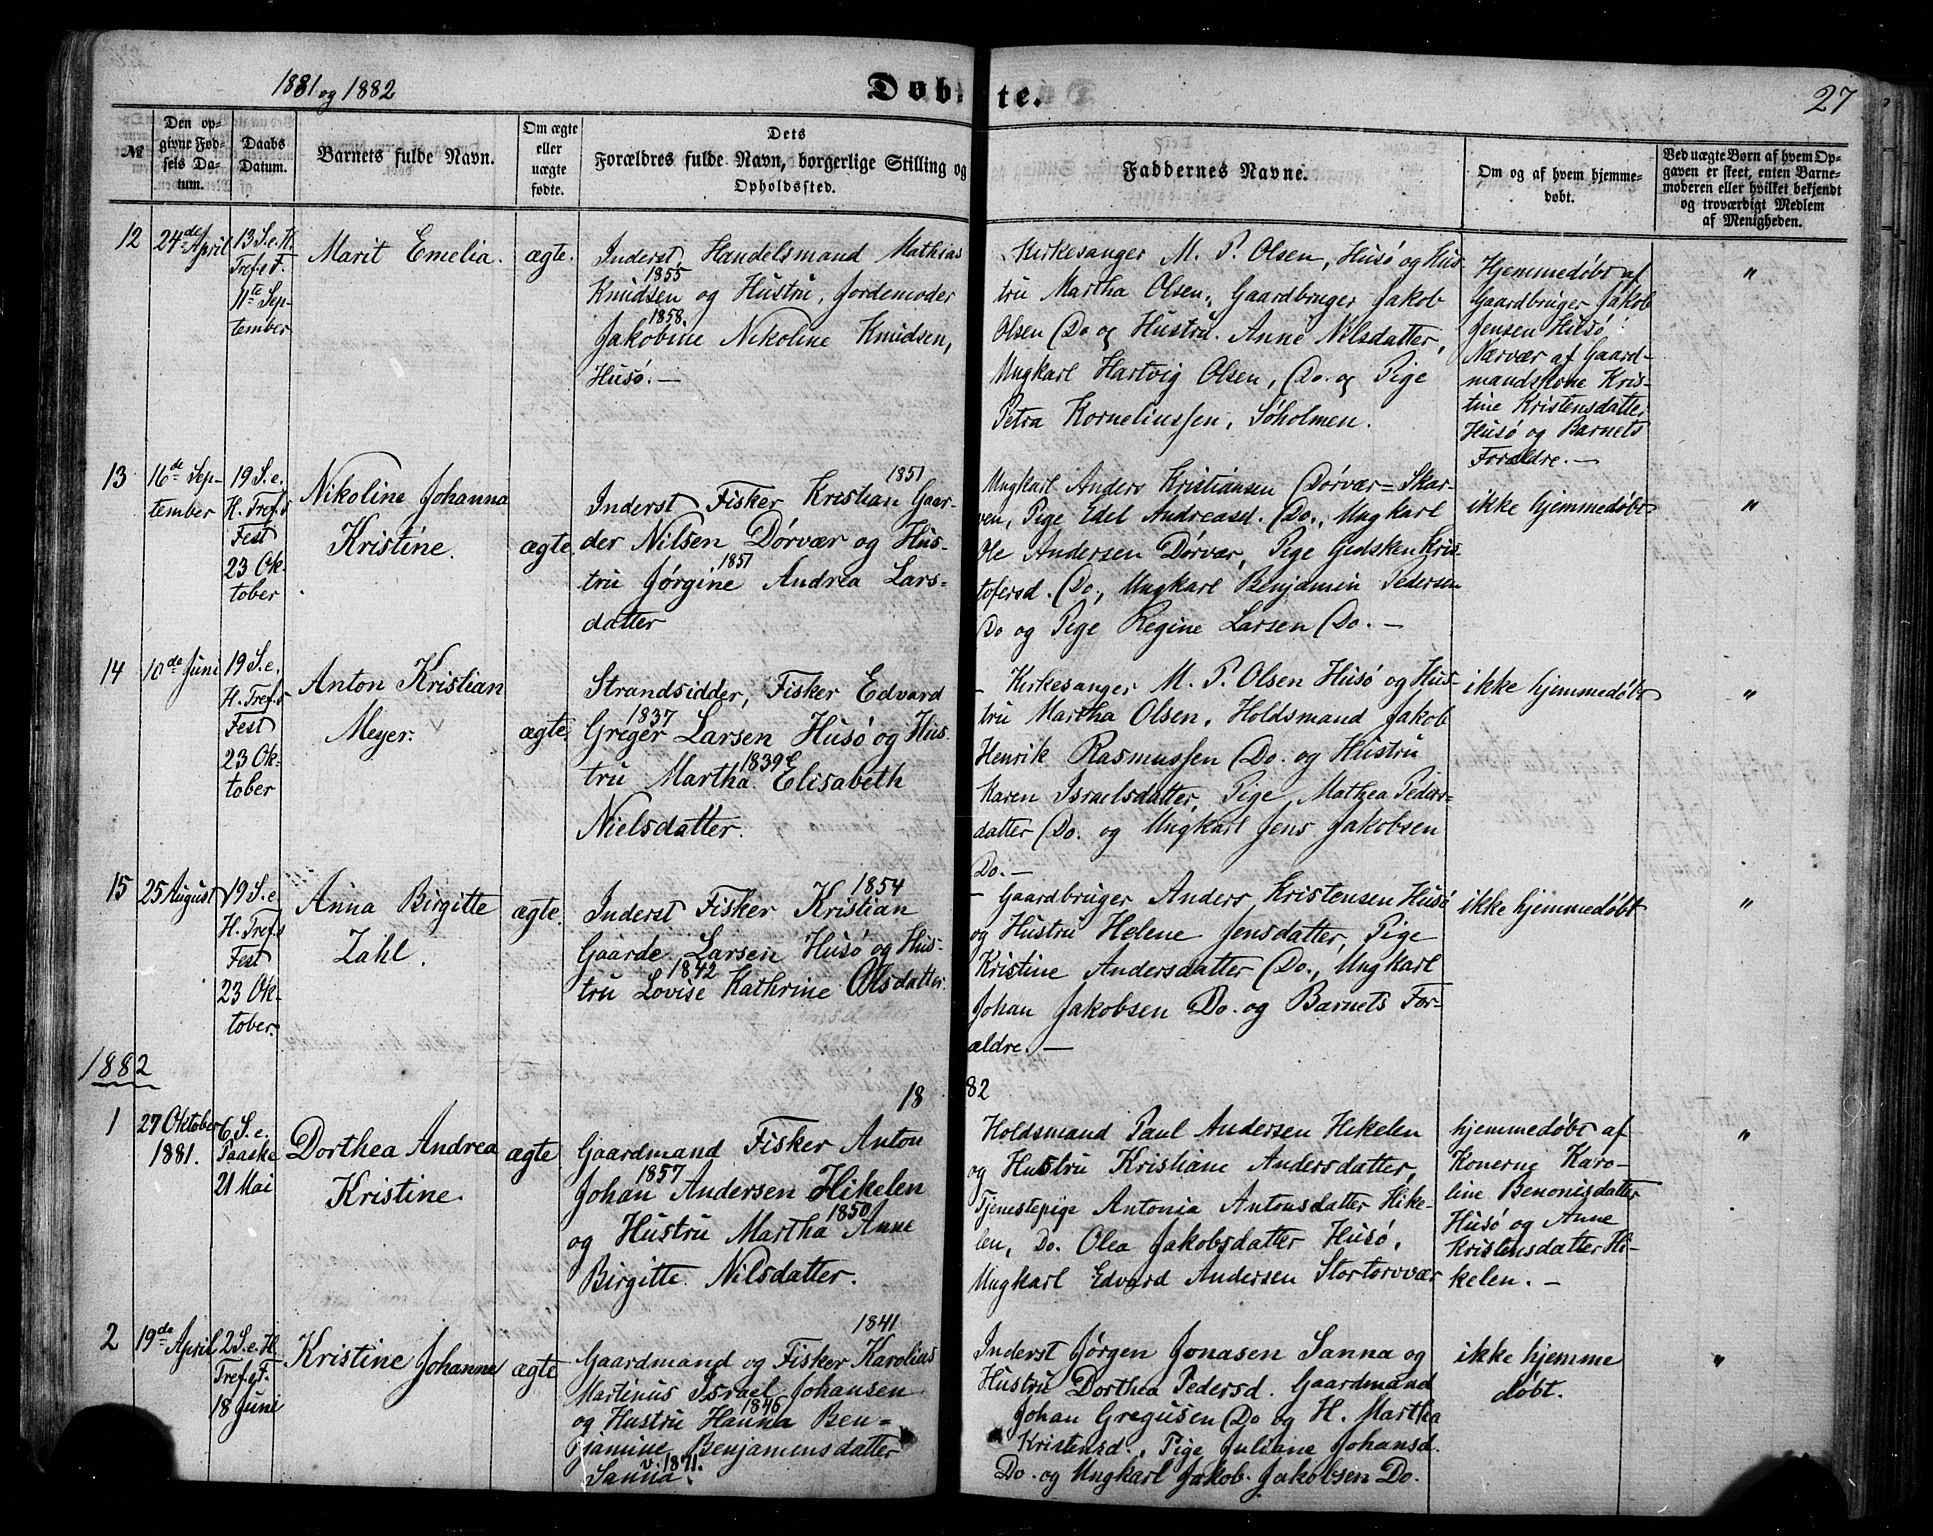 1881 og 1882
Døbte.
27
№
Den op-
givne Fød-
sels Da-
tum.
Daabs
Datum.
Barnets fulde Navn.
Om ægte
eller
uægte
fødte.
Dets
Forældres fulde Navn, borgerlige Stilling og
Opholdssted.
Faddernes Navne.
Om og af hvem hjemme-
døbt.
Ved uægte Børn af hvem Op-
gaven er skeet, enten Barne-
moderen eller hvilket bekjendt
og troværdigt Medlem
af Menigheden.
12
24de April
13 S. e. H.
Tref. F.
11te Sep-
tember
Marit Emelia.
ægte.
Inderst Handelsmand Mathias
1855
Knudsen og Hustru, Jordemoder
1858.
Jakobine Nikoline Knudsen,
Husö. —
Kirkesanger M. P. Olsen, Husö og Hus-
tru Martha Olsen, Gaardbruger Jakob
Olsen (Do og Hustru. Anne Nilsdatter,
Ungkarl Hartvig Olsen, (Do. og Pige
Petra Korneliussen, Söholmen.
Hjemmedøbt af
Gaardbruger Jakob
Jensen Husö i
Nærvær af Gaard-
mandskone Kris-
tine Kristensdatter
Husö og Barnets
Forældre. —
"
13
16de Sep-
tember
19 S. e.
H. Tref.s
Fest
23 Ok-
tober
Nikoline Johanna
Kristine.
ægte.
1851
Inderst Fisker Kristian Gaar-
der Nilsen Dörvær og Hus-
1851
tru Jørgine Andrea Lars-
datter
Ungkarl Anders Kristiansen (Dörvær = Skar-
ven, Pige Edel Andreasd. (Do., Ungkarl
Ole Andersen Dörvær, Pige Gidsken Kris-
tofersd. (Do., Ungkarl Benjamin Pedersen
Do og Pige Regine Larsen (Do. —
ikke hjemmedøbt
"
14
10de Juni
19 S. e.
H. Tref.s
Fest
23 Ok-
tober
Anton Kristian
Meyer.
ægte.
Strandsidder, Fisker Edvard
1837
Greger Larsen Husö og Hus-
1839
tru Martha Elisabeth
Nielsdatter.
Kirkesanger M. P. Olsen Husö og Hus-
tru Martha Olsen, Holdsmand Jakob
Henrik Rasmussen (Do. og Hustru
Karen Israelsdatter, Pige Mathea Peders-
datter (Do. og Ungkarl Jens Jakobsen
Do. —
ikke hjemmedøbt
"
15
25 August
19 S. e.
H. Tref.s
Fest
23 Ok-
tober.
Anna Birgitte
Zahl.
ægte.
1854
Inderst Fisker Kristian
Gaarde Larsen Husö og Hus-
1842
tru Lovise Kathrine Olsdatter.
— Gaardbruger Anders Kristensen Husö
og Hustru Helene Jensdatter, Pige
Kristine Andersdatter (Do., Ungkarl
Johan Jakobsen Do. og Barnets For-
ældre. —
ikke hjemmedøbt
"
1882
1882
1
27 Oktober
1881.
6 S. e.
Paaske
21 Mai
Dorthea Andrea
Kristine.
ægte
Gaardmand Fisker Anton
1857
Johan Andersen Hikelen
1850
og Hustru Martha Anne
Birgitte Nilsdatter.
Holdsmand Paul Andersen Hikelen
og Hustru Kristiane Andersdatter,
Tjenestepige Antonia Antonsdatter Hike-
len, Do. Olea Jakobsdatter Husö,
Ungkarl Edvard Andersen Stortorvvær
hjemmedøbt af
Konerne Karo-
line Benonisdatter
Husö og Anne
Kristensdatter Hi-
kelen. —
"
2
19de April
2 S. e. H.
Tref. F.
18 Juni
Kristine Johanne
ægte
1841.
Gaardmand og Fisker Karolius
Martinus Israel Johansen
1846
og Hustru Hanna Ben-
jamine Benjamensdatter
v. 1871.
Sanna.
Inderst Jørgen Jonasen Sanna og
Hustru Dorthea Pedersd. Gaardmand
Johan Gregusen (Do og H. Martha
Kristensd., Pige Juliane Johansd.
Do. og Ungkarl Jakob Jakobsen Do.
ikke hjemme
døbt.
"